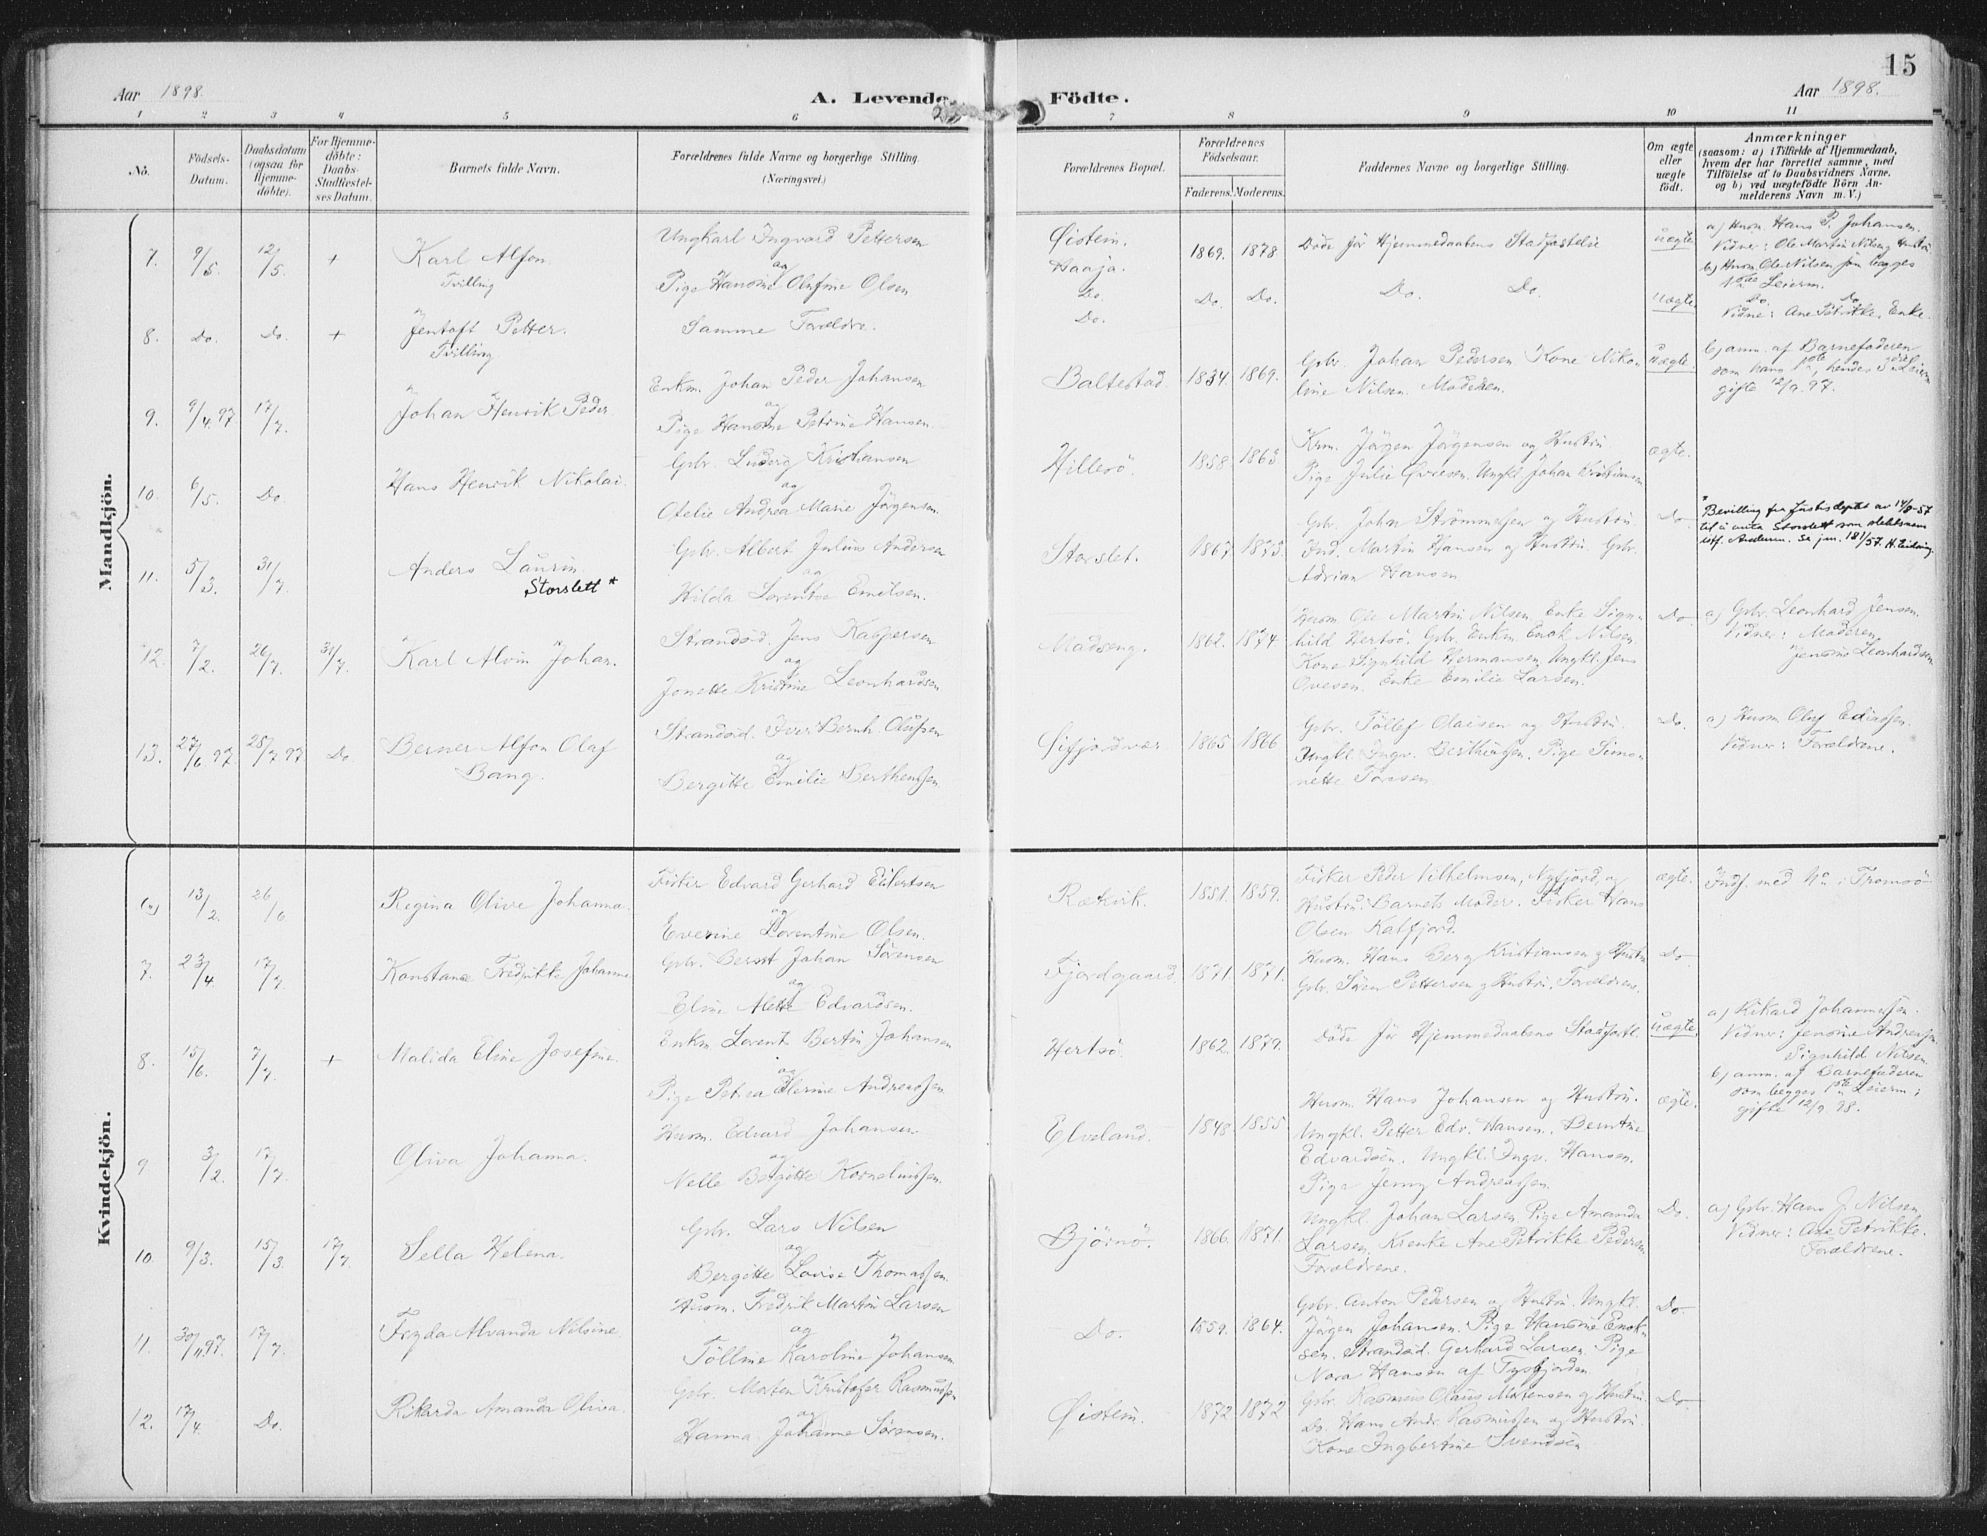 15
Aar 1898.
A. Levende Födte.
Aar 1898.
1 2 3 4 5 6 7 8 9 10 11
No.
Födsels-
Datum.
Daabsdatum
(ogsaa for
Hjemme-
döbte).
For Hjemme-
döbte:
Daabs-
Stadfæstel-
ses Datum.
Barnets fulde Navn.
Forældrenes fulde Navne og borgerlige Stilling.
(Næringsvei.)
Forældrenes Bopæl.
Forældrenes
Födselsaar.
Faderens. Moderens.
Faddernes Navne og borgerlige Stilling.
Om ægte
eller
uægte
födt.
Anmærkninger
(saasom: a) i Tilfælde af Hjemmedaab,
hvem der har forrettet samme, med
Tilföielse af to Daabsvidners Navne,
og b) ved uægtefödte Börn An-
melderens Navn m. V.)
Mandkjön.
7. 9/5 12/5. + Karl Alfon.
Tvilling
Ungkarl Ingvard Pettersen
og
Pige Hansine Olufine Olsen
Øistein.
Haaja.
1869. 1878
Døde før Hjemmedaabens Stadfæstelse
uægte
a) Husm. Hans P. Johansen.
Vidner: Ole Martin Nilsen Hustru
b) Husm. Ole Nilsen som begges
Leierm.
8. Do. Do. + Jentoft Petter.
Tvilling
Samme Forældre.
Do.
Do.
Do. Do. Do. Do. uægte
Do. Do.
Vidne: Ane Petrikke, Enke.
9. 9/4.97 17/7. Johan Henrik Peder.
Enkm. Johan Peder Johansen
og
Pige Hansine Petrine Hansen.
Baltestad. 1834. 1869.
Gbr. Johan Pedersen Kone Niko-
line Nilsen. Moderen.
uægte.
b) anm. af Barnefaderen
som hans, hendes Leierm
gifte 12/9.97.
10. 6/5. Do. Hans Henrik Nikolai.
Gbr. Ludvig Kristiansen
og
Ofelie Andrea Marie Jørgensen.
Hillesö. 1858. 1863
Krm. Jörgen Jörgensen og Hustru.
Pige Julie Ovesen. Ungkl. Johan Kristiansen
ægte.
11. 5/3. 31/7. Anders Laurin.
Storslett *
Gbr. Albert Julius Andersen
og
Hilda Lorentse Emilsen.
Storslet. 1867. 1873.
Gbr. Johan Strömmesen og Hustru.
Ind. Martin Hansen og Hustru. Gbr.
Adrian Hansen
Do.
* Bevilling fra Justisdeptet av 14/8-57
til å anta Storslett som slektsnavn
istf. Andersen. Se jnr. 181/57.
12. 7/2. 26/7. 31/7. Karl Alvin Johan.
Strandsid. Jens Kaspersen
og
Jonette Kristine Leonhardsen
Madseng. 1862. 1874.
Husm. Ole Martin Nilsen, Enke Sign-
hild Hertsö. Gbr. Enkm. Enok Nilsen.
Kone Signhild Hermansen, Ungkl. Jens
Ovesen. Enke Emilie Larsen.
Do.
a) Gbr. Leonhard Jensen.
Vidner: Moderen
Jensine Leonhardsen
13. 27/6.97 28/7.97 Do. Berner Alfon Olaf
Bang.
Strandsid. Iver Bernh. Olufsen
og
Bergitte Emilie Berthensen
Gifjordvær 1865. 1866
Gbr. Tollef Olaisen og Hustru.
Ungkl. Ingv. Berthensen, Pige Simo-
nette Toresen.
Do.
a) Husm Oluf Edinssen.
Vidner: Forældrene.
Kvindekjön.
13/2. 26/6 Regina Olive Johanna.
Fisker Edvard Gerhard Eilertsen
og
Everine Lorentine Olsen.
Rækvik. 1851. 1859.
Fisker Peder Vilhelmsen, Nyfjord og
Hustru. Barnets Moder. Fisker Hans
Olsen Kalfjord.
ægte.
Indf. med No i Tromsö
7. 23/4. 17/7. Konstanse Fredrikke Johanne
Gbr. Bernt Johan Sörensen
og
Eline Mette Edvardsen.
Fjordgaard. 1871. 1871.
Husm. Hans Berg Kristiansen og Hustru
Gbr. Sören Pettersen og Hustru. Forældrene.
Do.
8. 15/6. 7/7. + Malida Eline Josefine.
Enkm. Lorents Bertin Johansen
og
Pige Petrea Elerine Andreassen.
Hertsö. 1862. 1879.
Døde før Hjemmedaabens Stadfæst.
uægte
a) Rikard Johannessen.
Vidner: Jensine Andreassen.
Signhild Nilsen.
b) anm. af Barnefaderen
som begges Leierm.;
gifte 12/9 98.
9 3/2. 17/7. Oliva Johanna.
Husm. Edvard Johansen.
og
Nelle Bergitte Korneliussen.
Elveland. 1848. 1855.
Husm. Hans Johansen og Hustru.
Ungkl. Petter Edv. Hansen. Berntine
Edvardsen. Ungkl. Ingv. Hansen.
Pige Jenny Andreassen.
ægte.
10. 9/3. 15/3. 17/7. Sella Helena.
Gbr. Lars Nilsen
og
Bergitte Lovise Thomassen.
Bjørnö. 1866. 1871.
Ungkl. Johan Larsen Pige Amanda
Larsen. Kvenke Ane Petrikke Pedersen
Forældrene.
Do.
a) Gbr. Hans J. Nilsen
Vidner: Ane Petrikke.
Forældrene.
11. 30/11.97. 17/7. Fryda Alvanda Nilsine.
Husm. Fredrik Martin Larsen
og
Tölline Karoline Johansen.
Do. 1859. 1864.
Gbr. Anton Pedersen og Hustru. Ungkl.
Jörgen Johansen. Pige Hansine Enok-
sen. Strandsid. Gerhard Larsen. Pige
Nora Hansen af Tysfjorden
Do.
12. 17/4. Do. Rikarda Amanda Oliva.
Gbr. Morten Kristofer Rasmussen
og
Hanna Johanne Sörensen.
Øistein. 1872 1872
Gbr. Rasmus Olaus Mortensen og Hustru
Do. Hans Andr. Rasmussen og Hustru.
Kone Ingbertine Svendsen
Do.